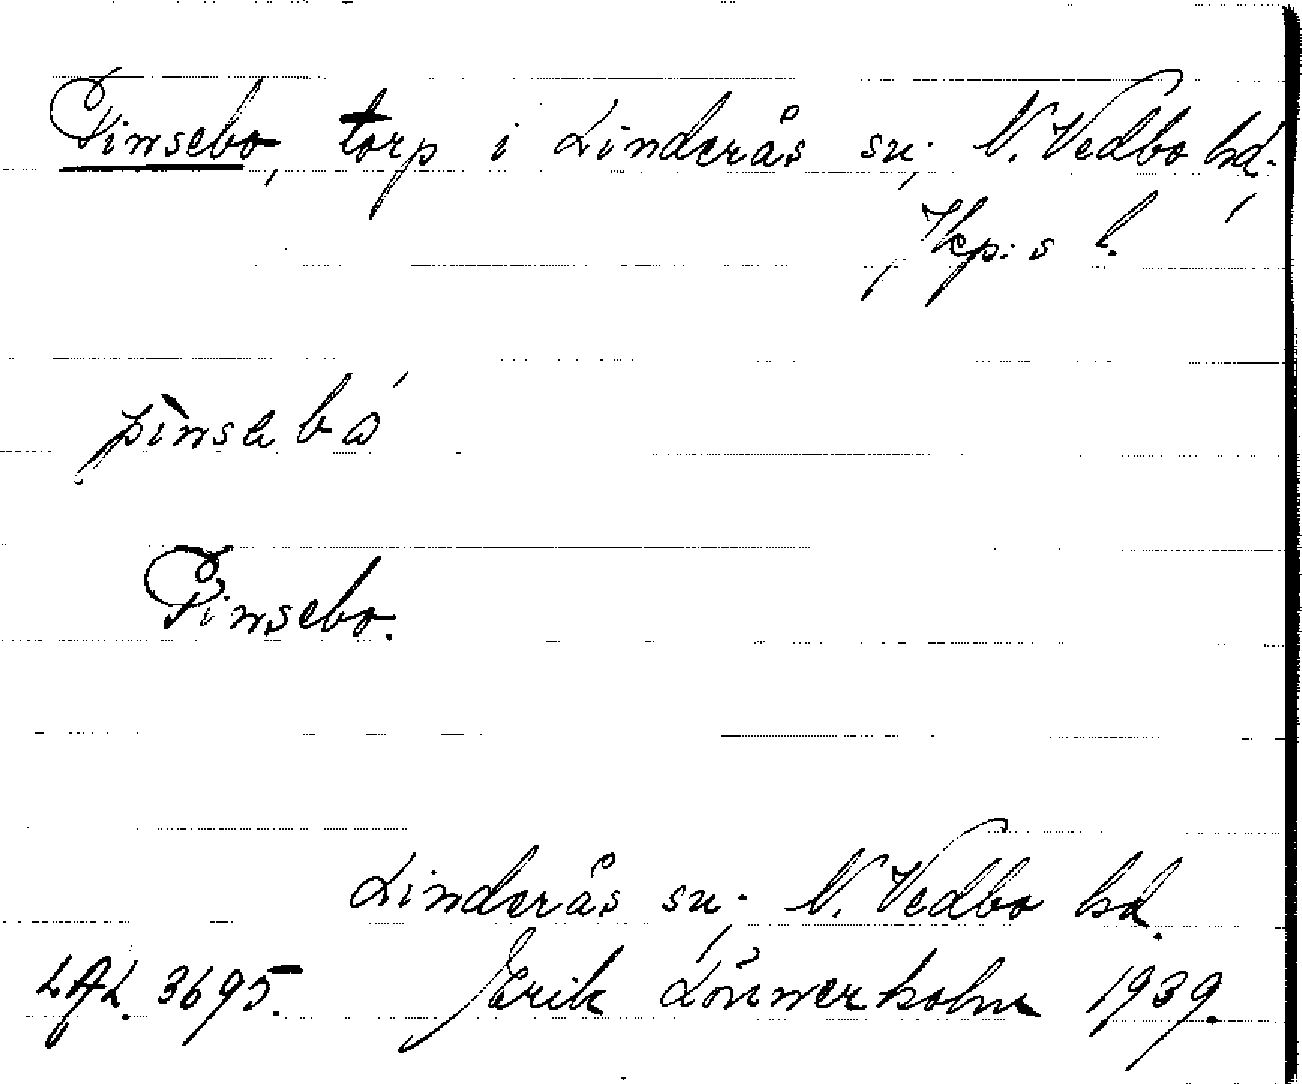 Pinsebo, torp i Linderås sn, N. Vedbo hd,
Jkp:s l.
pìnsabó
Pinsebo.
Linderås sn, N. Vedbo hd.
LAL. 3695. Erik Lönnerholm 1939.